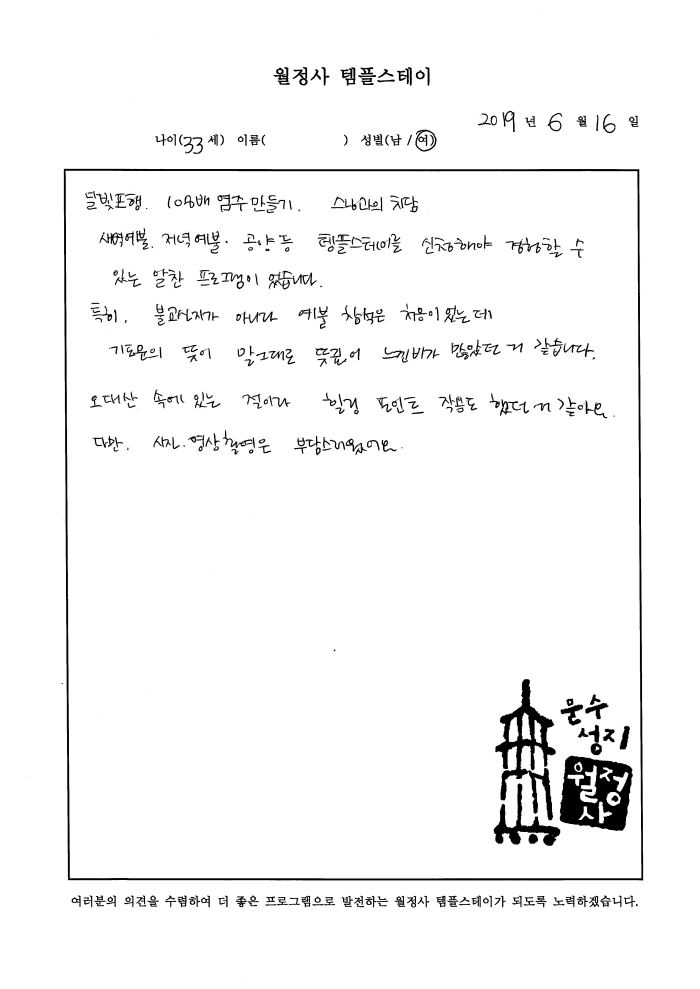 월정사 템플스테이
2019 년 6 월 16 일
나이(33 세) 이름( ) 성별(남 / 여)
달빛포행. 108배 염주 만들기. 스님과의 차담
새벽예불. 저녁예불. 공양 등 템플스테이를 신청해야 경험할 수
있는 알찬 프로그램이 있습니다.
특히, 불교신자가 아니라 예불 참석은 처음이었는데
기도문의 뜻이 말그대로 뜻깊어 느낀바가 많았던 거 같습니다.
오대산 속에 있는 절이라 힐링 포인트 작용도 했던 거 같아요.
다만, 사진·영상촬영은 부담스러웠어요.
문수
성지
월정
사
여러분의 의견을 수렴하여 더 좋은 프로그램으로 발전하는 월정사 템플스테이가 되도록 노력하겠습니다.